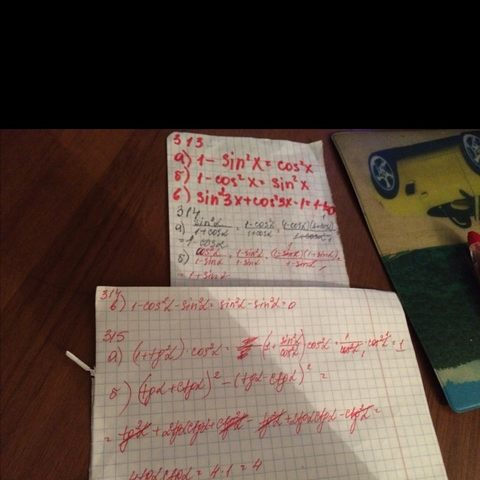 313
а) 1 - sin²x = cos²x
б) 1 - cos²x = sin²x
в) sin²3x + cos²3x - 1 = 1 - 1 = 0
314
а) sin²α/(1+cosα) = (1-cos²α)/(1+cosα) = (1-cosα)(1+cosα)/(1+cosα) =
= 1 - cosα
б) cos²α/(1-sinα) = (1-sin²α)/(1-sinα) = (1+sinα)(1-sinα)/(1-sinα) =
= 1 + sinα
314
в) 1 - cos²α - sin²α = sin²α - sin²α = 0
315
а) (1 + tg²α) · cos²α = (1 + sin²α/cos²α) · cos²α = 1/cos²α · cos²α = 1
б) (tgα + ctgα)² - (tgα - ctgα)² =
= tg²α + 2tgα ctgα + ctg²α - tg²α + 2tgα ctgα - ctg²α =
4tgα ctgα = 4 · 1 = 4